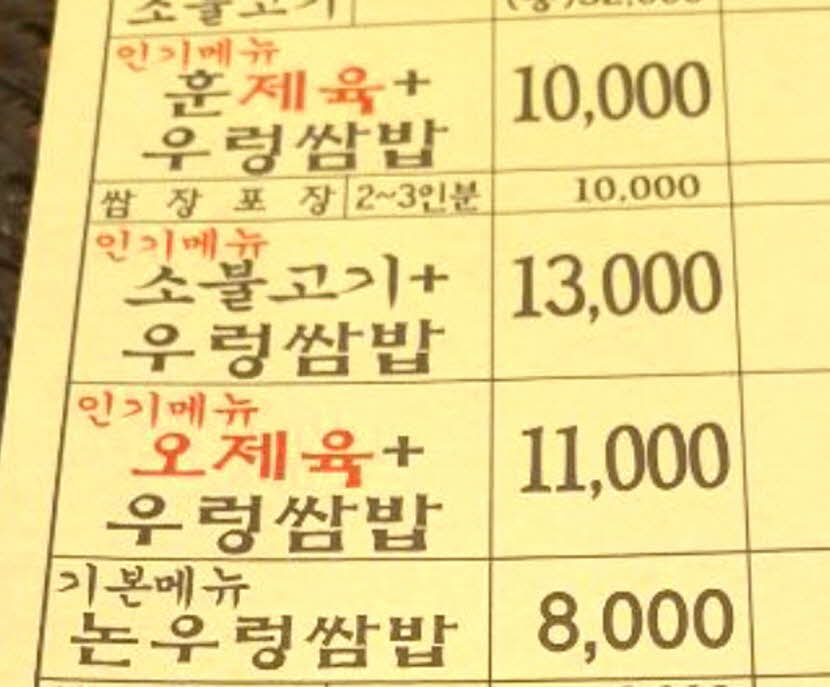 소불고기
인기메뉴
훈제육+
우렁쌈밥
10,000
쌈장포장 2~3인분 10,000
인기메뉴
소불고기+
우렁쌈밥
13,000
인기메뉴
오제육+
우렁쌈밥
11,000
기본메뉴
논우렁쌈밥
8,000